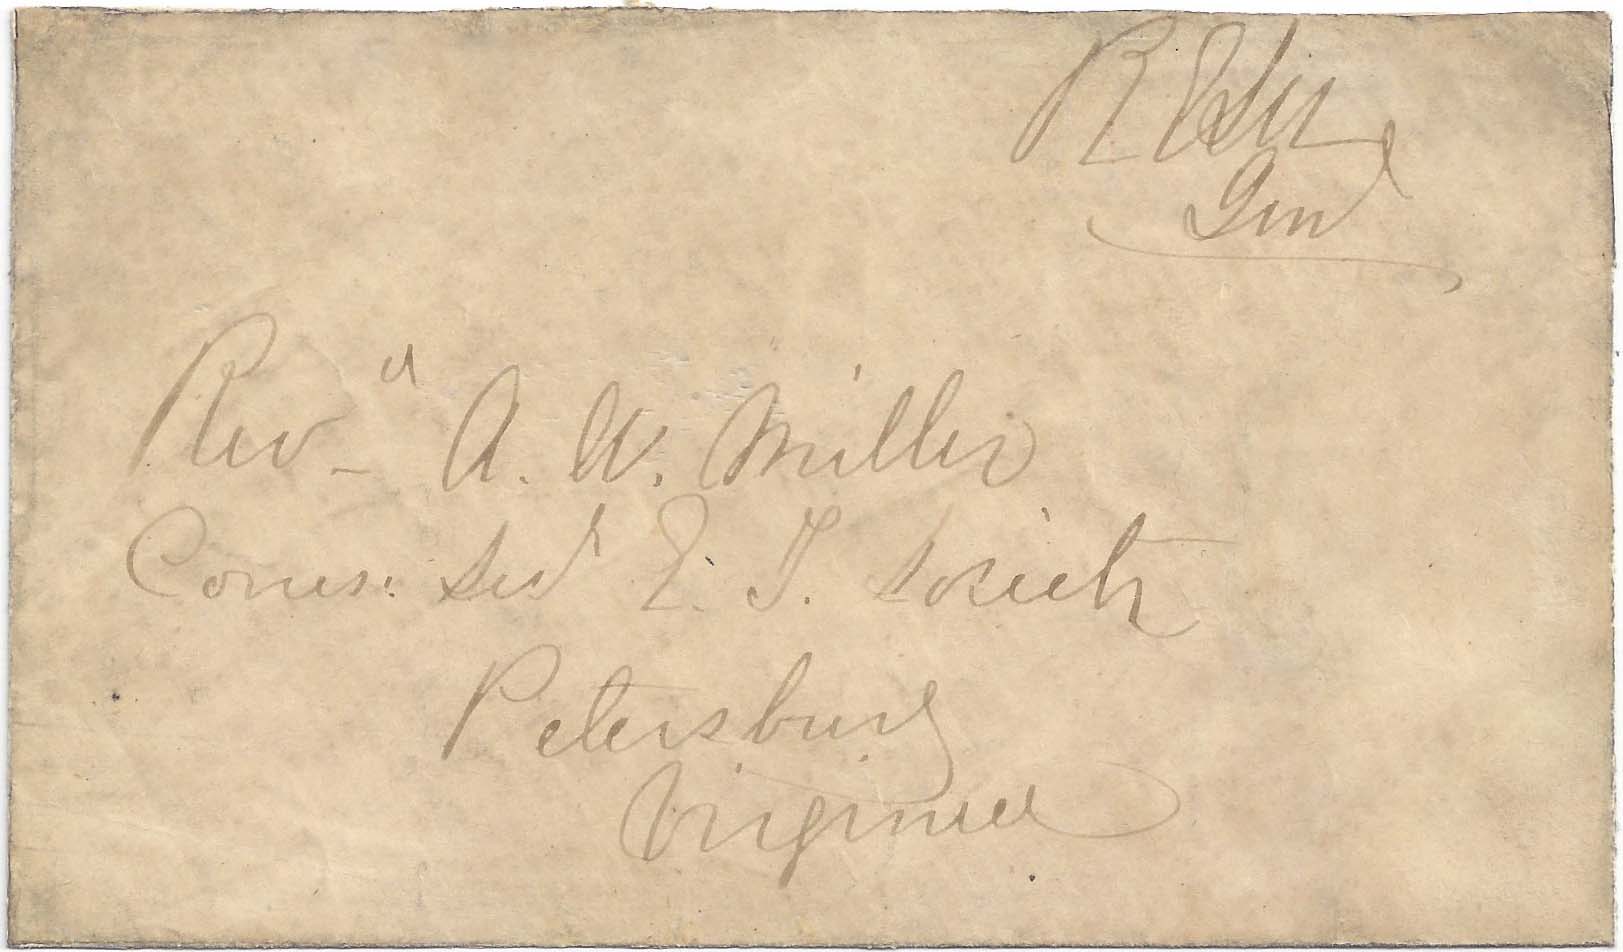 R E Lee
Genl
Revd A. W. Miller
Corres: Secy E. T. Society
Petersburg
Virginia